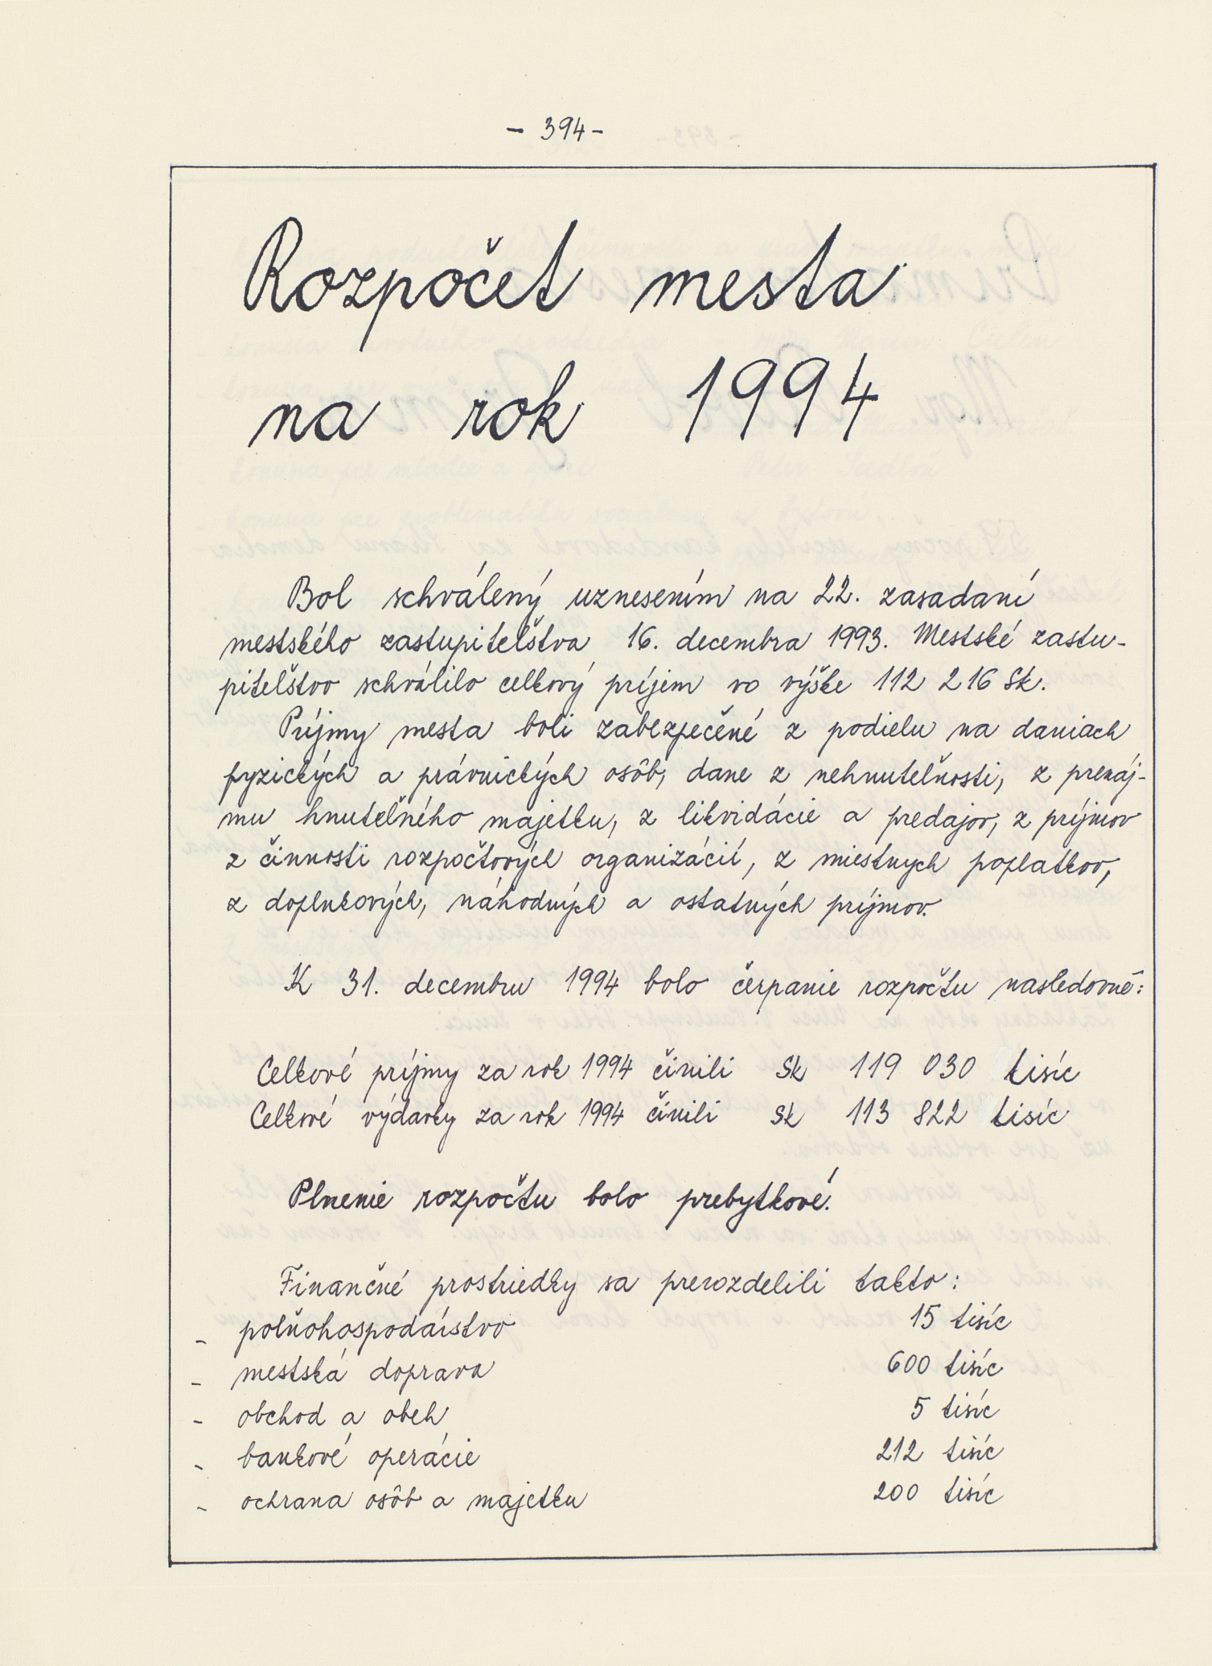 - 394 -
Rozpočet mesta
na rok 1994
Bol schválený uznesením na 22. zasadaní
mestského zastupiteľstva 16. decembra 1993. Mestské zastu-
piteľstvo schválilo celkový príjem vo výške 112 216 Sk.
Príjmy mesta boli zabezpečené z podielu na daniach
fyzických a právnických osôb, dane z nehnuteľnosti, z prenáj-
mu hnuteľného majetku, z likvidácie a predajov, z príjmov
z činnosti rozpočtových organizácií, z miestnych poplatkov,
z doplnkových, náhodných a ostatných príjmov.
K 31. decembru 1994 bolo čerpanie rozpočtu nasledovné:
Celkové príjmy za rok 1994 činili Sk 119 030 tisíc
Celkové výdavky za rok 1994 činili Sk 113 822 tisíc
Plnenie rozpočtu bolo prebytkové.
Finančné prostriedky sa prerozdelili takto:
- poľnohospodárstvo 15 tisíc
- mestská doprava 600 tisíc
- obchod a obeh 5 tisíc
- bankové operácie 212 tisíc
- ochrana osôb a majetku 200 tisíc